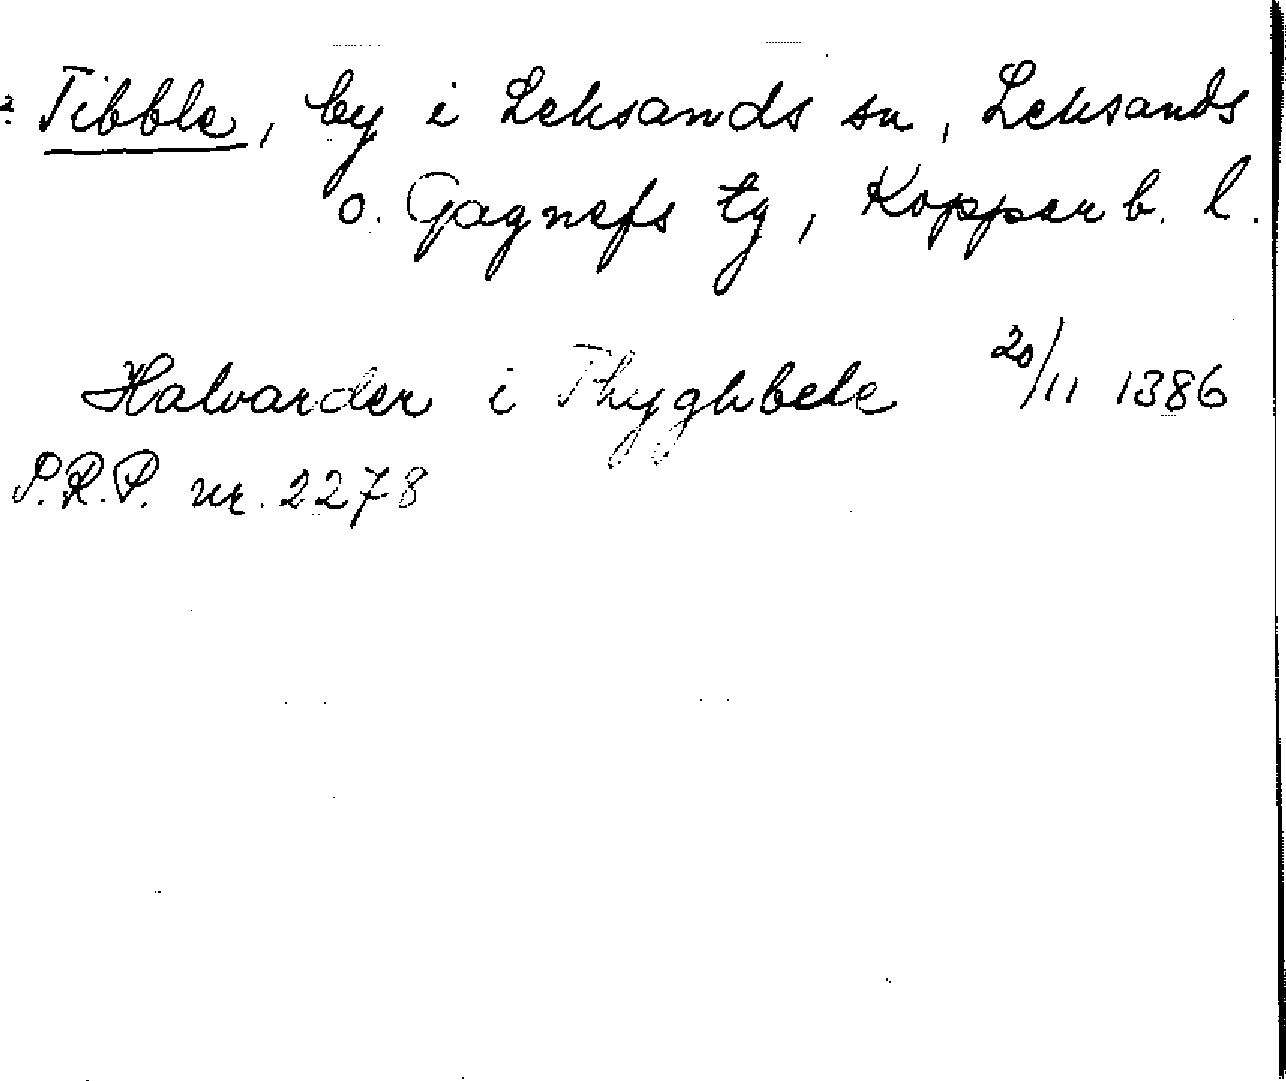 Tibble, by i Leksands sn, Leksands
o. Gagnefs tg, Kopparb. l.
Halvarder i Thyghbele 20/11 1386
S.R.P. nr. 2278